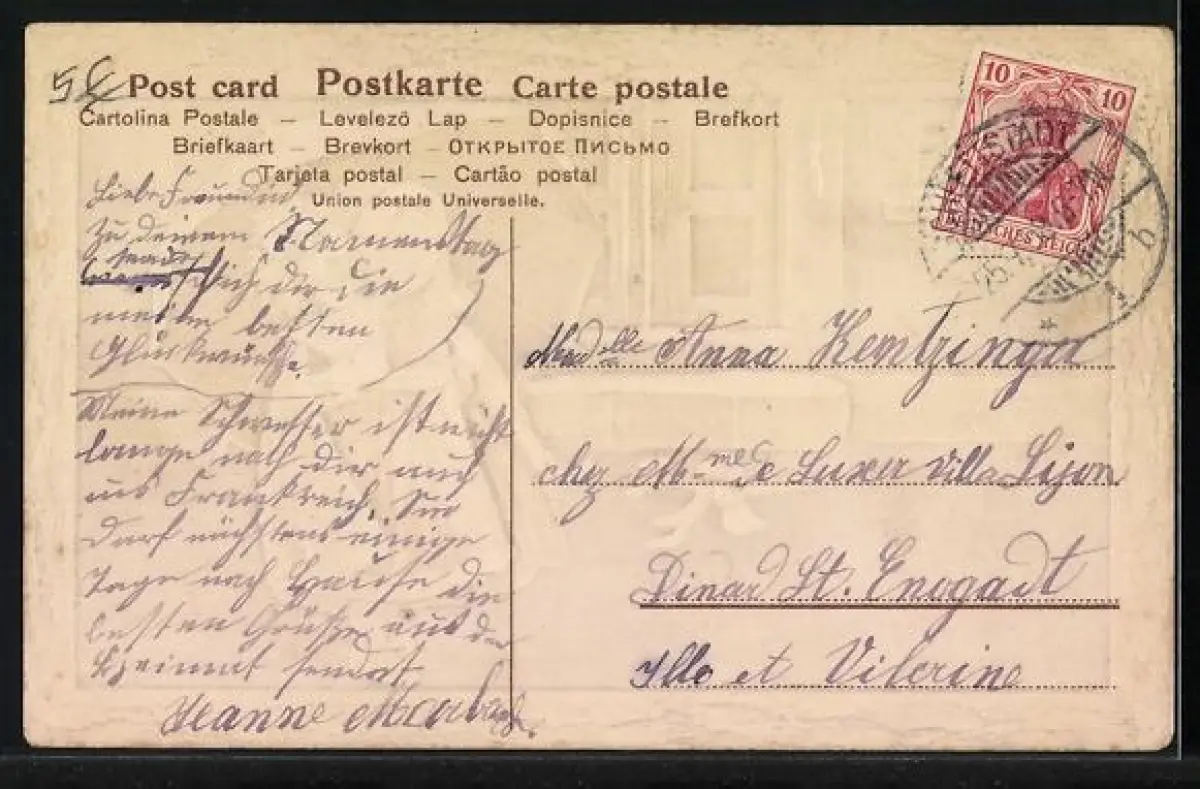 Post card Postkarte Carte postale
Cartolina Postale – Levelezö Lap – Dopisnice – Brefkort
Briefkaart – Brevkort – ОТКРЫТОЕ ПИСЬМО
Tarjeta postal – Cartão postal
Union postale Universelle.
10 10
DEUTSCHES REICH
Liebe Freundin
Zu deinem Namenstag
sende ich dir die
meine besten
Glückwünsche.
Meine Schwester ist nicht
lange nach dir auch
ins Frankreich. Sie
darf nächstens einige
Tage nach Hause die
besten Grüße aus der
Heimat sendet
Jeanne
Madelle Anna Kentzinger
chez Mme de Luxer Villa Lijon
Dinard St. Enogadt
Ille et Vilerine